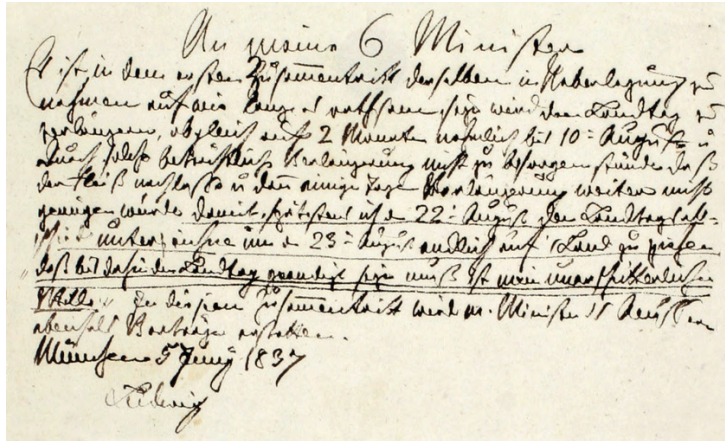 An meine 6 Minister
Es ist in dem ersten Zusammentritt derselben in Ueberlegung zu
nehmen auf wie lange es rathsam seyn wird den Landtag zu
verlängern, obgleich auf 2 Monate nehmlich bis 10 = August u
durch solche beträchtliche Verlängerung nicht zu besorgen stünde daß
der Fleiß nachlasse u dann einige Tage Verlängerung weiter nicht
genügen würde damit spätestens ich d 22 = August den Landtagsab-
schied unterzeichne um d 23 = August endlich auf's Land zu gehen
daß bis dahin der Landtag geendigt seyn muß ist mein unerschütterlicher
Wille. In diesem Zusammentritt wird m. Minister d Aeussern
ebenfalls Vorträge erstatten.
München 5 Juny 1837
Ludwig